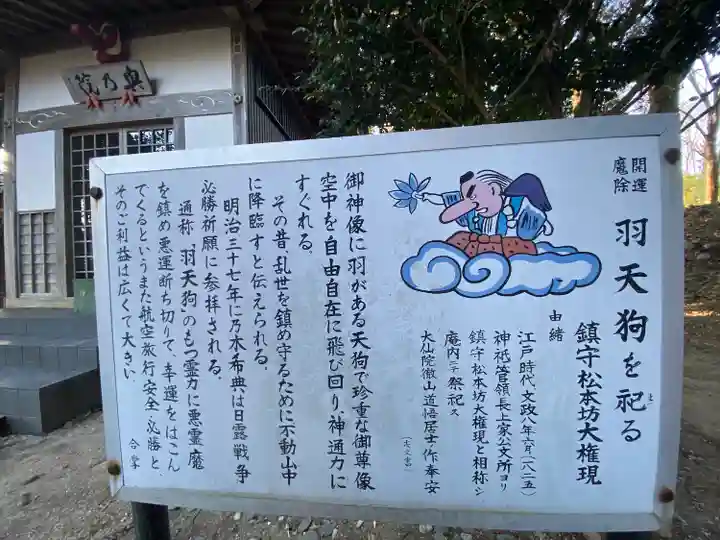 開運
魔除
羽天狗を祀る
まつ
鎮守、松本坊大権現
由緒
江戸時代、文政八年六月(一八二五)
神祇管領長上家公文所ヨリ
鎮守、松本坊大権現と相称シ
庵内ニテ祭祀ス
大仙院徹山道悟居士の作奉安
御神像に羽がある天狗で珍重な御尊像
空中を自由自在に飛び回り、神通力に
すぐれる。
その昔、乱世を鎮め守るために不動山中
に降臨すと伝えられる。
明治三十七年に乃木希典は日露戦争
必勝祈願に参拝される。
通称“羽天狗”のもつ霊力に悪霊魔
を鎮め悪運断ち切りて、幸運をはこん
でくるというまた航空旅行安全、必勝と、
そのご利益は広くて大きい。
合掌
奥乃院